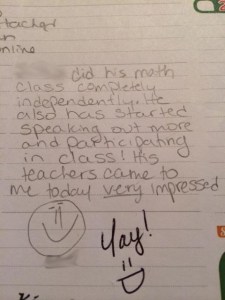 teacher
online
did his math
class completely
independently. He
also has started
speaking out more
and participating
in class! His
teachers came to
me today very impressed
Yay!